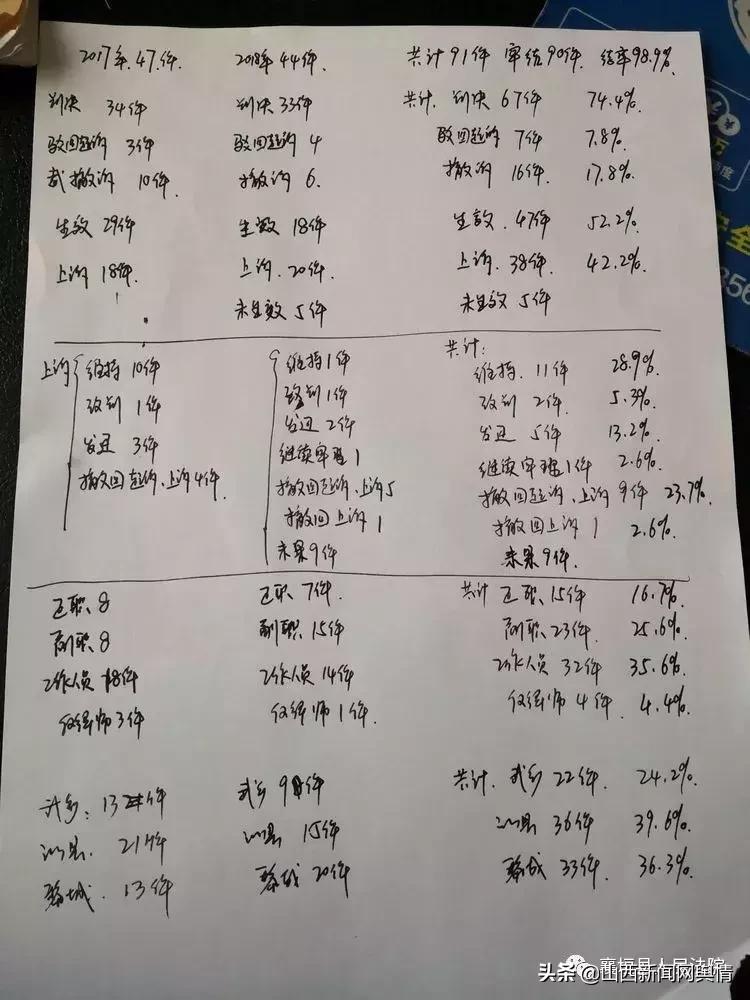 2017年.47件. 2018年44件. 共计91件 审结90件 结率98.9%
判决 34件 判决 33件 共计.判决 67件 74.4%
驳回起诉 3件 驳回起诉 4 驳回起诉 7件 7.8%
裁撤诉 10件. 撤诉 6. 撤诉 16件 17.8%
生效 29件 生效 18件 生效.47件 52.2%
上诉 18件. 上诉.20件. 上诉.38件. 42.2%
未生效 5件 未生效 5件
上诉 维持 10件 维持 1件 共计: 维持. 11件 28.9%
改判 1件 改判 1件 改判 2件 5.3%
发还 3件 发还 2件 发还 5件 13.2%
撤回起诉.上诉4件. 继续审理 1 继续审理1件 2.6%
撤回起诉.上诉5 撤回起诉.上诉 9件 23.7%
撤回上诉 1 撤回上诉 1 2.6%
未果9件 未果9件.
正职.8 正职.7件. 共计 正职.15件 16.7%
副职.8 副职.15件 副职.23件 25.6%
工作人员 18件 工作人员 14件 工作人员 32件 35.6%
仅律师 3件 仅律师 1件. 仅律师 4件. 4.4%
武乡: 13件 武乡 9件 共计. 武乡 22件. 24.2%
沁县. 21件 沁县 15件 沁县 36件 39.6%
黎城. 13件 黎城 20件 黎城 33件. 36.3%
安全
襄垣县人民法院
头条@山西新闻网舆情